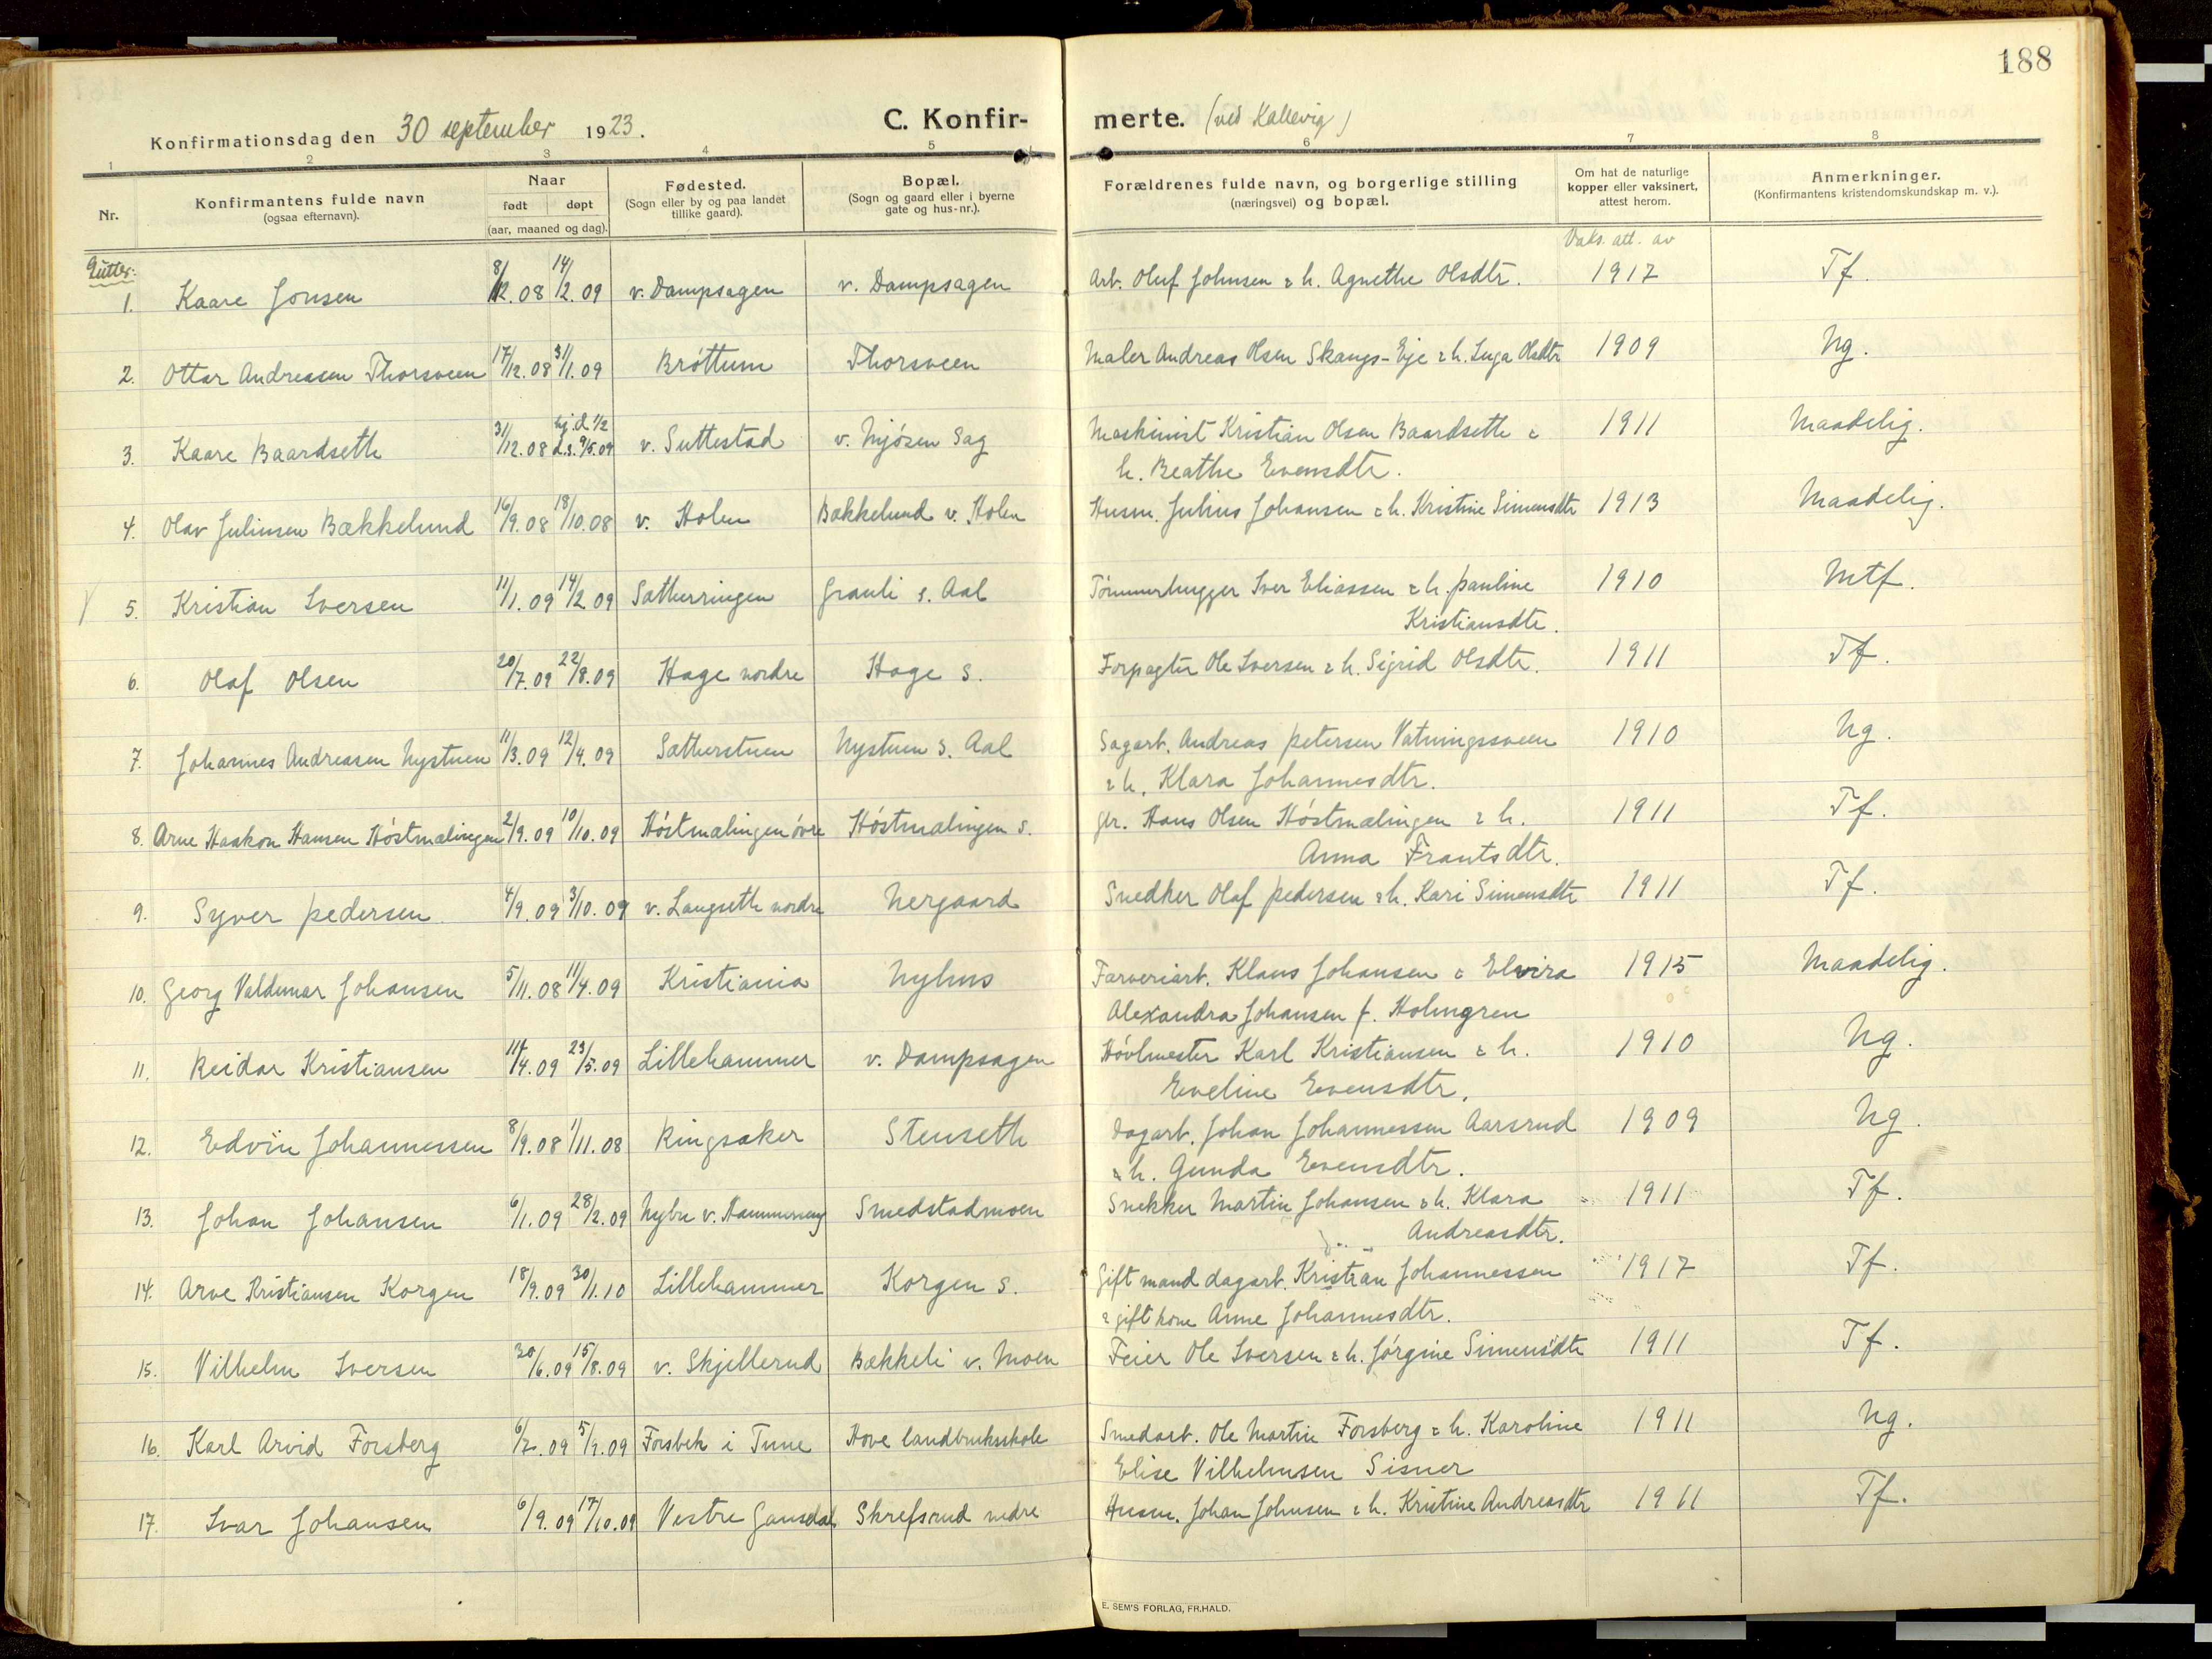 188
Konfirmationsdag den 30 september 1923.
C. Konfir-
merte. (ved Kallevig)
1 2 3 4 5 6 7 8
Nr.
Konfirmantens fulde navn
(ogsaa efternavn).
Naar
født døpt
(aar, maaned og dag).
Fødested.
(Sogn eller by og paa landet
tillike gaard).
Bopæl.
(Sogn og gaard eller i byerne
gate og hus-nr.).
Forældrenes fulde navn, og borgerlige stilling
(næringsvei) og bopæl.
Om hat de naturlige
kopper eller vaksinert,
attest herom.
Anmerkninger.
(Konfirmantens kristendomskundskap m. v.).
Vaks. att. av
Gutter:
1. Kaare Jonsen 8/12.08 14/2.09 v. Dampsagen v. Dampsagen Arb. Oluf Johnsen & h. Agnethe Olsdtr. 1917 Tf.
2. Ottar Andreasen Thorsveen 17/12.08 31/1.09 Brøttum Thorsveen Maler Andreas Olsen Skaugs-Eje & h. Inga Olsdtr 1909 Ng.
3. Kaare Baardseth 31/12.08 hj.d. 1/2 d.s. 9/5.09 v. Suttestad v. Mjøsen Sag Maskinist Kristian Olsen Baardseth & 1911 Maadelig.
h. Beathe Evensdtr.
4. Olav Juliusen Bækkelund 16/9.08 18/10.08 v. Holen Bækkelund v. Holen Husm. Julius Johansen & h. Kristine Simensdtr 1913 Maadelig.
5. Kristian Iversen 11/1.09 14/2 09 Sætherringen Grauli s. Aal Tømmerhugger Iver Eliassen & h. Pauline 1910 Mtf.
Kristiansdtr.
6. Olaf Olsen 20/7.09 22/8.09 Hage nordre Hage s. Forpagter Ole Iversen & h. Sigrid Olsdtr. 1911 Tf.
7. Johannes Andreasen Nystuen 11/3.09 12/4.09 Sætherstuen Nystuen s. Aal Sagarb. Andreas Petersen Vatningssveen 1910 Ng.
& h. Klara Johannesdtr.
8. Arne Haakon Hansen Høstmælingen 2/9.09 10/10.09 Høstmælingen øvre Høstmælingen s. gbr. Hans Olsen Høstmælingen & h. 1911 Tf.
Anna Frantsdtr.
9. Syver Pedersen 4/9.09 3/10.09 v. Langseth nordre Nergaard Snedker Olaf Pedersen & h. Kari Simensdtr 1911 Tf.
10. Georg Valdemar Johansen 5/11.08 11/4.09 Kristiania Nyhus Farveriarb. Klaus Johansen & Elvira 1915 Maadelig.
Alexandra Johansen f. Holmgren
11. Reidar Kristiansen 11/4.09 23/5.09 Lillehammer v. Dampsagen Høvlmester Karl Kristiansen & h. 1910 Ng.
Eveline Evensdtr.
12. Edvin Johannessen 8/9.08 1/11.08 Ringsaker Stenseth Dagarb. Johan Johannessen Aarsrud 1909 Ng.
& h. Gunda Evensdtr.
13. Johan Johansen 6/1.09 28/2.09 Nybu v. Hammereng Smedstadmoen Snekker Martin Johansen & h. Klara 1911 Tf.
Andreasdtr.
14. Arve Kristiansen Korgen 18/9.09 30/1.10 Lillehammer Korgen s. Gift mand dagarb. Kristian Johannessen 1917 Tf.
& gift kone Anne Johannesdtr.
15. Vilhelm Iversen 30/6.09 15/8.09 v. Skjellerud Bækkeli v. Moen Feier Ole Iversen & h. Jørgine Simensdtr 1911 Tf.
16. Karl Arvid Forsberg 6/7.09 5/9.09 Forsbek i Tune Hove landbruksskole Smedarb. Ole Martin Forsberg & h. Karoline 1911 Ng.
Elise Vilhelmsen Sisner
17. Ivar Johansen 6/9.09 17/10.09 Vestre Gausdal Skrefsrud nedre Husm. Johan Johnsen & h. Kristine Andreasdtr 1911 Tf.
E. SEM'S FORLAG, FR.HALD.